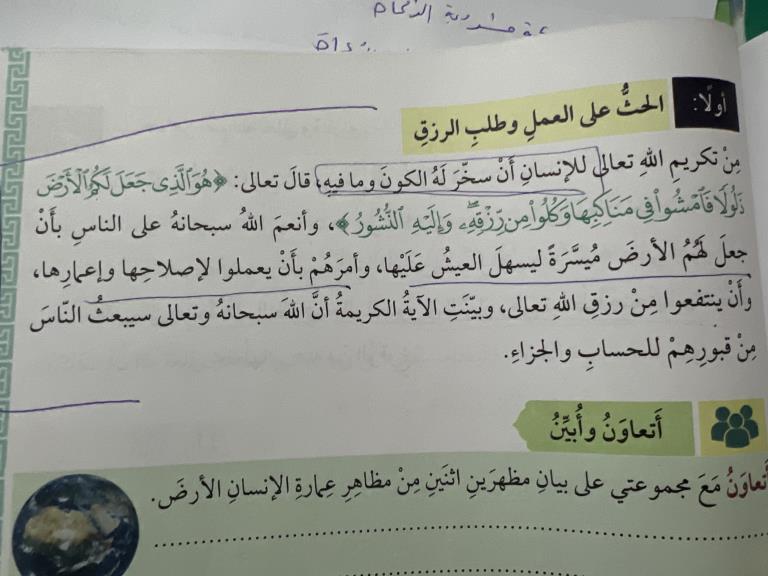 أولًا:
الحثُّ على العملِ وطلبِ الرزقِ
مِنْ تكريمِ اللهِ تعالى للإنسانِ أَنْ سخَّرَ لَهُ الكونَ وما فيهِ، قالَ تعالى: ﴿هُوَ ٱلَّذِى جَعَلَ لَكُمُ ٱلْأَرْضَ
ذَلُولًا فَٱمْشُوا۟ فِى مَنَاكِبِهَا وَكُلُوا۟ مِن رِّزْقِهِۦۖ وَإِلَيْهِ ٱلنُّشُورُ﴾، وأنعمَ اللهُ سبحانهُ على الناسِ بأَنْ
جعلَ لَهُمُ الأرضَ مُيسَّرَةً ليسهلَ العيشُ عَلَيْها، وأمرَهُمْ بأَنْ يعملوا لإصلاحِها وإعمارِها،
وأَنْ ينتفعوا مِنْ رزقِ اللهِ تعالى، وبيَّنَتِ الآيةُ الكريمةُ أَنَّ اللهَ سبحانهُ وتعالى سيبعثُ النّاسَ
مِنْ قبورِهِمْ للحسابِ والجزاءِ.
أَتعاوَنُ وأُبيِّنُ
أَتعاوَنُ مَعَ مجموعتي على بيانِ مظهرَينِ اثنَينِ مِنْ مظاهرِ عِمارةِ الإنسانِ الأرضَ.